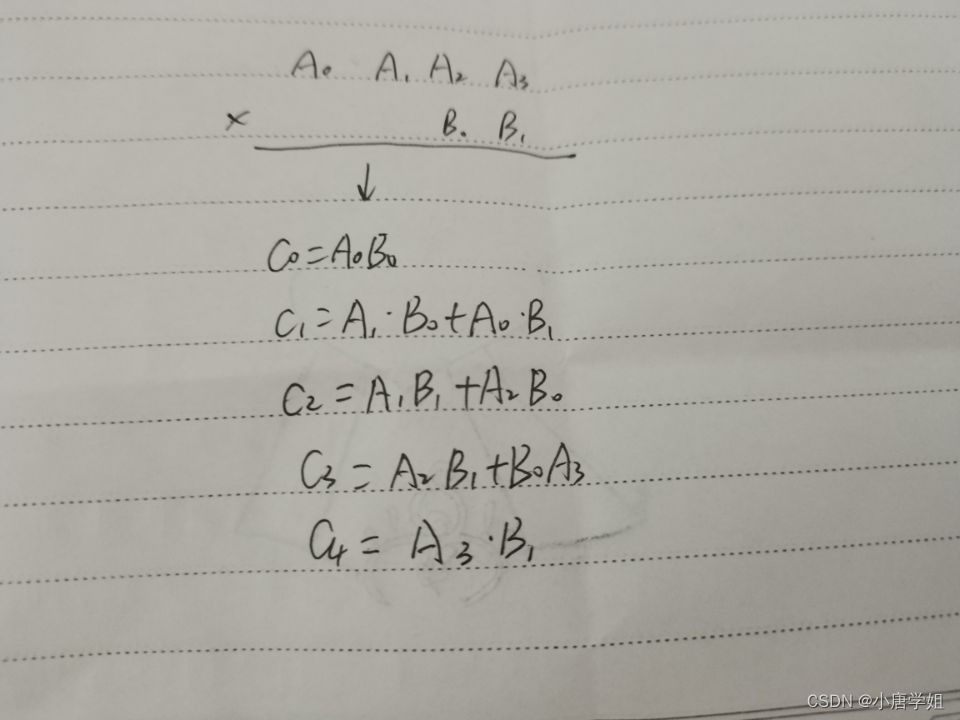 A₀ A₁ A₂ A₃
× B₀ B₁
↓
C₀=A₀B₀
C₁=A₁·B₀+A₀·B₁
C₂=A₁B₁+A₂B₀
C₃=A₂B₁+B₀A₃
C₄=A₃·B₁
CSDN @小唐学姐